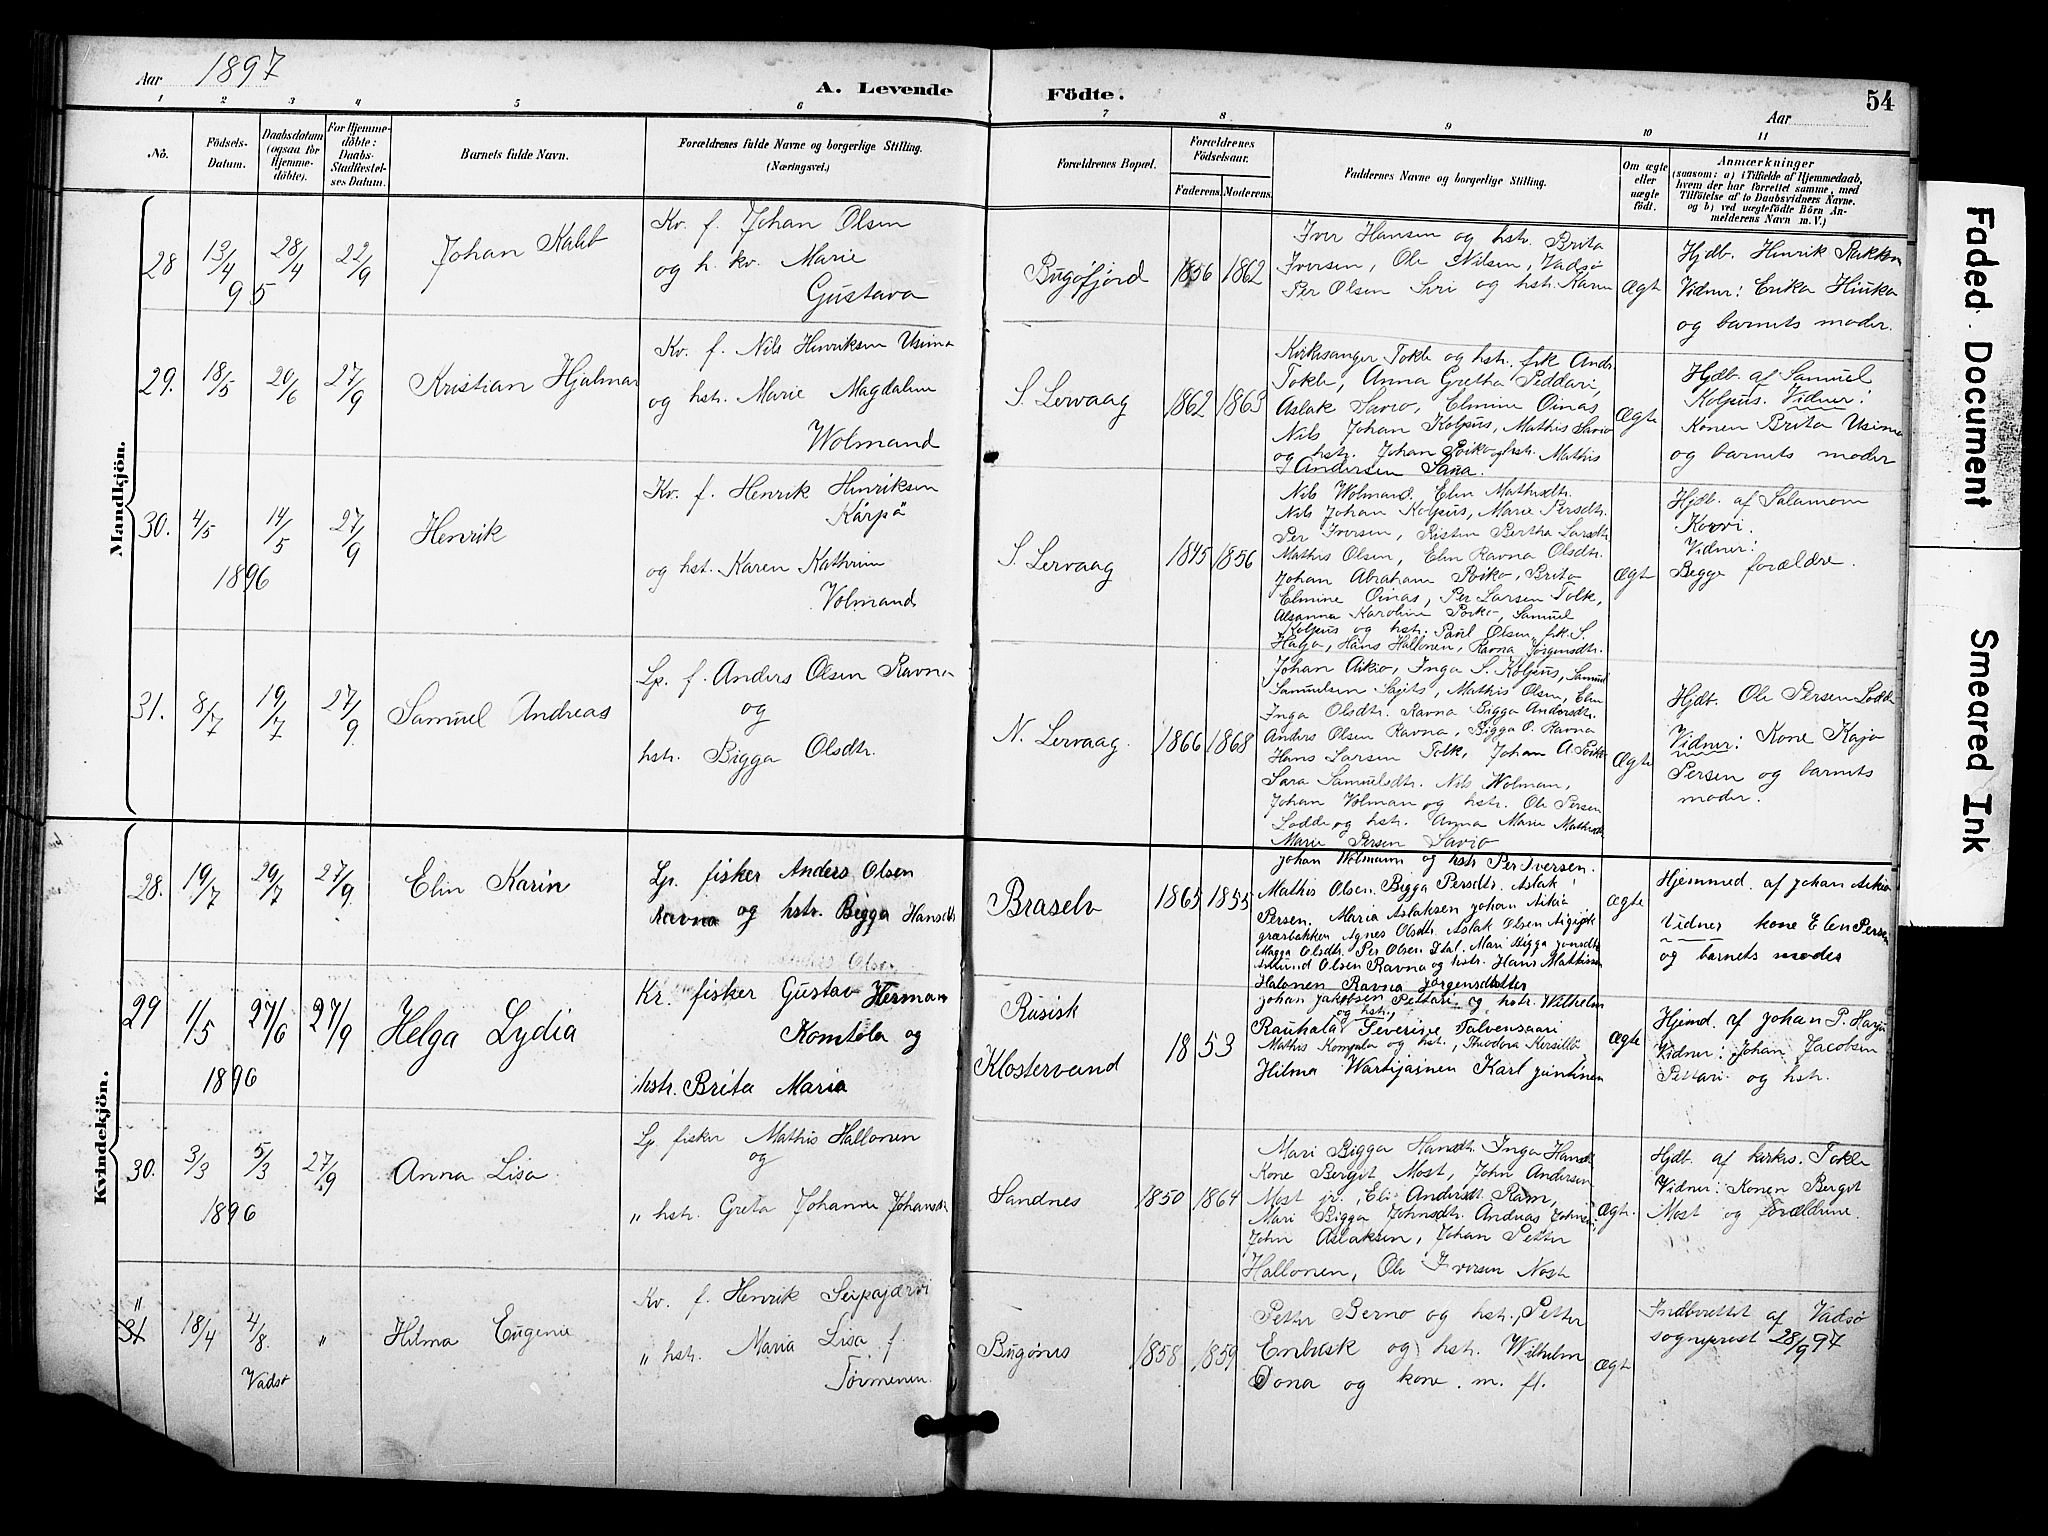 Aar 1897
A. Levende Födte.
Aar
54
1 2 3 4 5 6 7 8 9 10 11
No.
Födsels-Datum.
Daabsdatum (ogsaa for Hjemme-döbte).
For Hjemme-döbte: Daabs-Stadfæstel-ses Datum.
Barnets fulde Navn.
Forældrenes fulde Navne og borgerlige Stilling. (Næringsvei.)
Forældrenes Bopæl.
Forældrenes Födselsaar.
Faderens. Moderens.
Faddernes Navne og borgerlige Stilling.
Om ægte eller uægte födt.
Anmærkninger
(saasom: a) i Tilfælde af Hjemmedaab,
hvem der har forrettet samme, med
Tilföielse af to Daabsvidners Navne.
og b) ved uægtefödte Börn An-
melderens Navn m. V.)
Mandkjön.
28 13/4 95 28/4 22/9
Johan Kaleb
Kv. f. Johan Olsen
og h. kv. Marie
Gustava
Bugöfjord 1856 1862
Iver Hansen og hstr. Brita
Iversen, Ole Nilsen, Vadsø
Per Olsen Siri og hstr. Karen
Ægte
Hjdb. Henrik
Vidner: Erika
og barnets moder.
29. 18/5 20/6 27/9
Kristian Hjalmar
Kv. f. Nils Henriksen Usima
og hstr. Marie Magdalene
Wolmand
S. Lervaag 1862 1863
Kirkesanger Tokle og hstr. frk Andr.
Tokle, Anna Gretha Peddari,
Aslak Savio, Elmine Oinas
Nils Johan Kolpus, Mathis Savio
og hstr. Johan Poiko og hstr. Mathis
Andersen Sana.
Ægte
Hjdb. af Samuel
Kolpus. Vidner:
Konen Brita Usima
og barnets moder
30. 4/5 14/5 27/9
1896
Henrik
Kv. f. Henrik Henriksen
Kärpä
og hst. Karen Kathrine
Volmand
S. Lervaag 1845 1856
Nils Wolmand, Elen Mathisdtr.
Nils Johan Kolpus, Marie Persdtr.
Per Iversen, Kristin Bertha Larsdtr
Mathis Olsen, Elen Ravna Olsdtr.
Johan Abraham Poiko, Brita
Elmine Oinas, Per Larsen Tolk,
Karoline Poiko, Samuel
Kolpus og hstr. Paul Olsen, frk. S.
Hans Hallonen, Ravna Jörgensdtr.
Ægte
Hjdb. af Salamon
Korvi.
Vidner:
Begge forældre.
31. 8/7 19/7 27/9
Samuel Andreas
Lp. f. Anders Olsen Ravna
og
hstr. Bigga Olsdtr.
N. Lervaag. 1866 1868
Johan Aikio, Inga S. Kolpus, Samuel
Samuelsen Sajets, Mathis Olsen, Elen
Inga Olsdtr. Ravna Bigga Andersdtr.
Anders Olsen Ravna, Bigga O. Ravna
Hans Larsen Tolk, Johan A. Poiko
Sara Samuelsdtr. Nils Wolman,
Johan Volman og hstr. Ole Persen
Lodde og hstr. Anna Marie Mathisdtr
Marie Persen Savio
Ægte
Hjdt. Ole Persen Lodde
Vidner: Kone Kaja
Persen og barnets
moder.
Kvindekjön.
28. 19/7 29/7 27/9
Elin Karin
Lp. fisker Anders Olsen
Ravna og hstr. Bigga Hansdtr
Braselv 1865 1855
Johan Wolmann og hstr Per Iversen.
Mathis Olsen. Bigga Persdtr. Aslak
Persen. Maria Aslaksen Johan Aikio
græsbakken Agnes Olsdtr. Aslak Olsen
Magga Olsdtr. Per Olsen Dal. Mari Bigga Jonsdtr
Olsen Ravna og hstr. Hans Mathisen
Halonen Ravna Jörgensdatter
Ægte
Hjemmed. af Johan Aikio
Vidner kone Elen Persen
og barnets moder
29 1/5 27/6 27/9
1896
Helga Lydia
Kv. fisker Gustav Herman
Komtola og
hstr. Brita Maria
Rusisk
Klostervand 1853
Johan Jakobsen Pettari. og hstr. Wilhelm
og hstr,
Rauhala Severine Talvensaari
Mathis Komtola og hst., Theodora
Hilma Wartijainen Karl Jantinen
Ægte
Hjemd. af Johan P. Harju
Vidner: Johan Jacobsen
Pettari og hstr.
30. 3/3 5/3 27/9
1896
Anna Lisa
Lp. fisker Mathis Hallonen
og
" hstr. Greta Johanne Johansdtr
Sandnes 1850 1864
Mari Bigga Hansdtr. Inga Hansdtr
Kone Bergit Most, John Andersen
Most jr. Eli Andersdt. Ram,
Mari Bigga Johnsdtr. Andreas Johnsen
John Aslaksen, Johan Petter
Hallonen, Ole Iversen Nost
Ægte.
Hjdb. af kirkes. Tokle
Vidner: Konen Bergit
Most og forældrene.
31 18/4 4/8 Vadsø "
Hilma Eugenie
Kv. f. Henrik Seipajærvi
" hstr. Maria Lisa f.
Törmenen.
Bugönes 1858 1859
Petter Berno og hstr., Petter
Enbusk og hstr. Wilhelm
og kone. m. fl.
Ægte
Indberettet af Vadsø
sogneprest 28/9 97
Faded Document
Smeared Ink